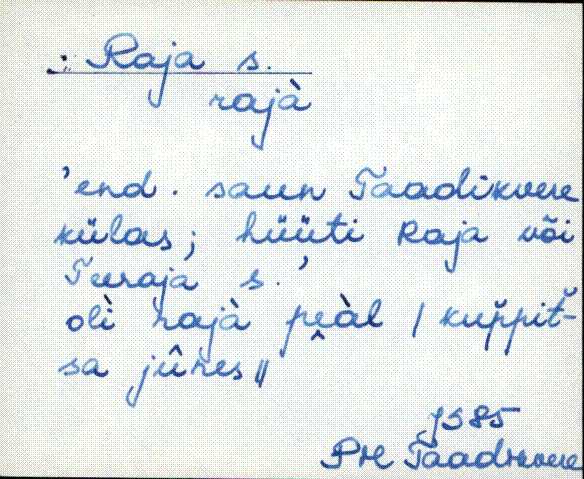 : Raja s.
rajà
'end. saun Taadikvere
külas; hüüti Raja või
Teeraja s.'
olì rajà peàl / kup̆pit̆-
sa jû̀res //
JS 85
Pil Taadikvere